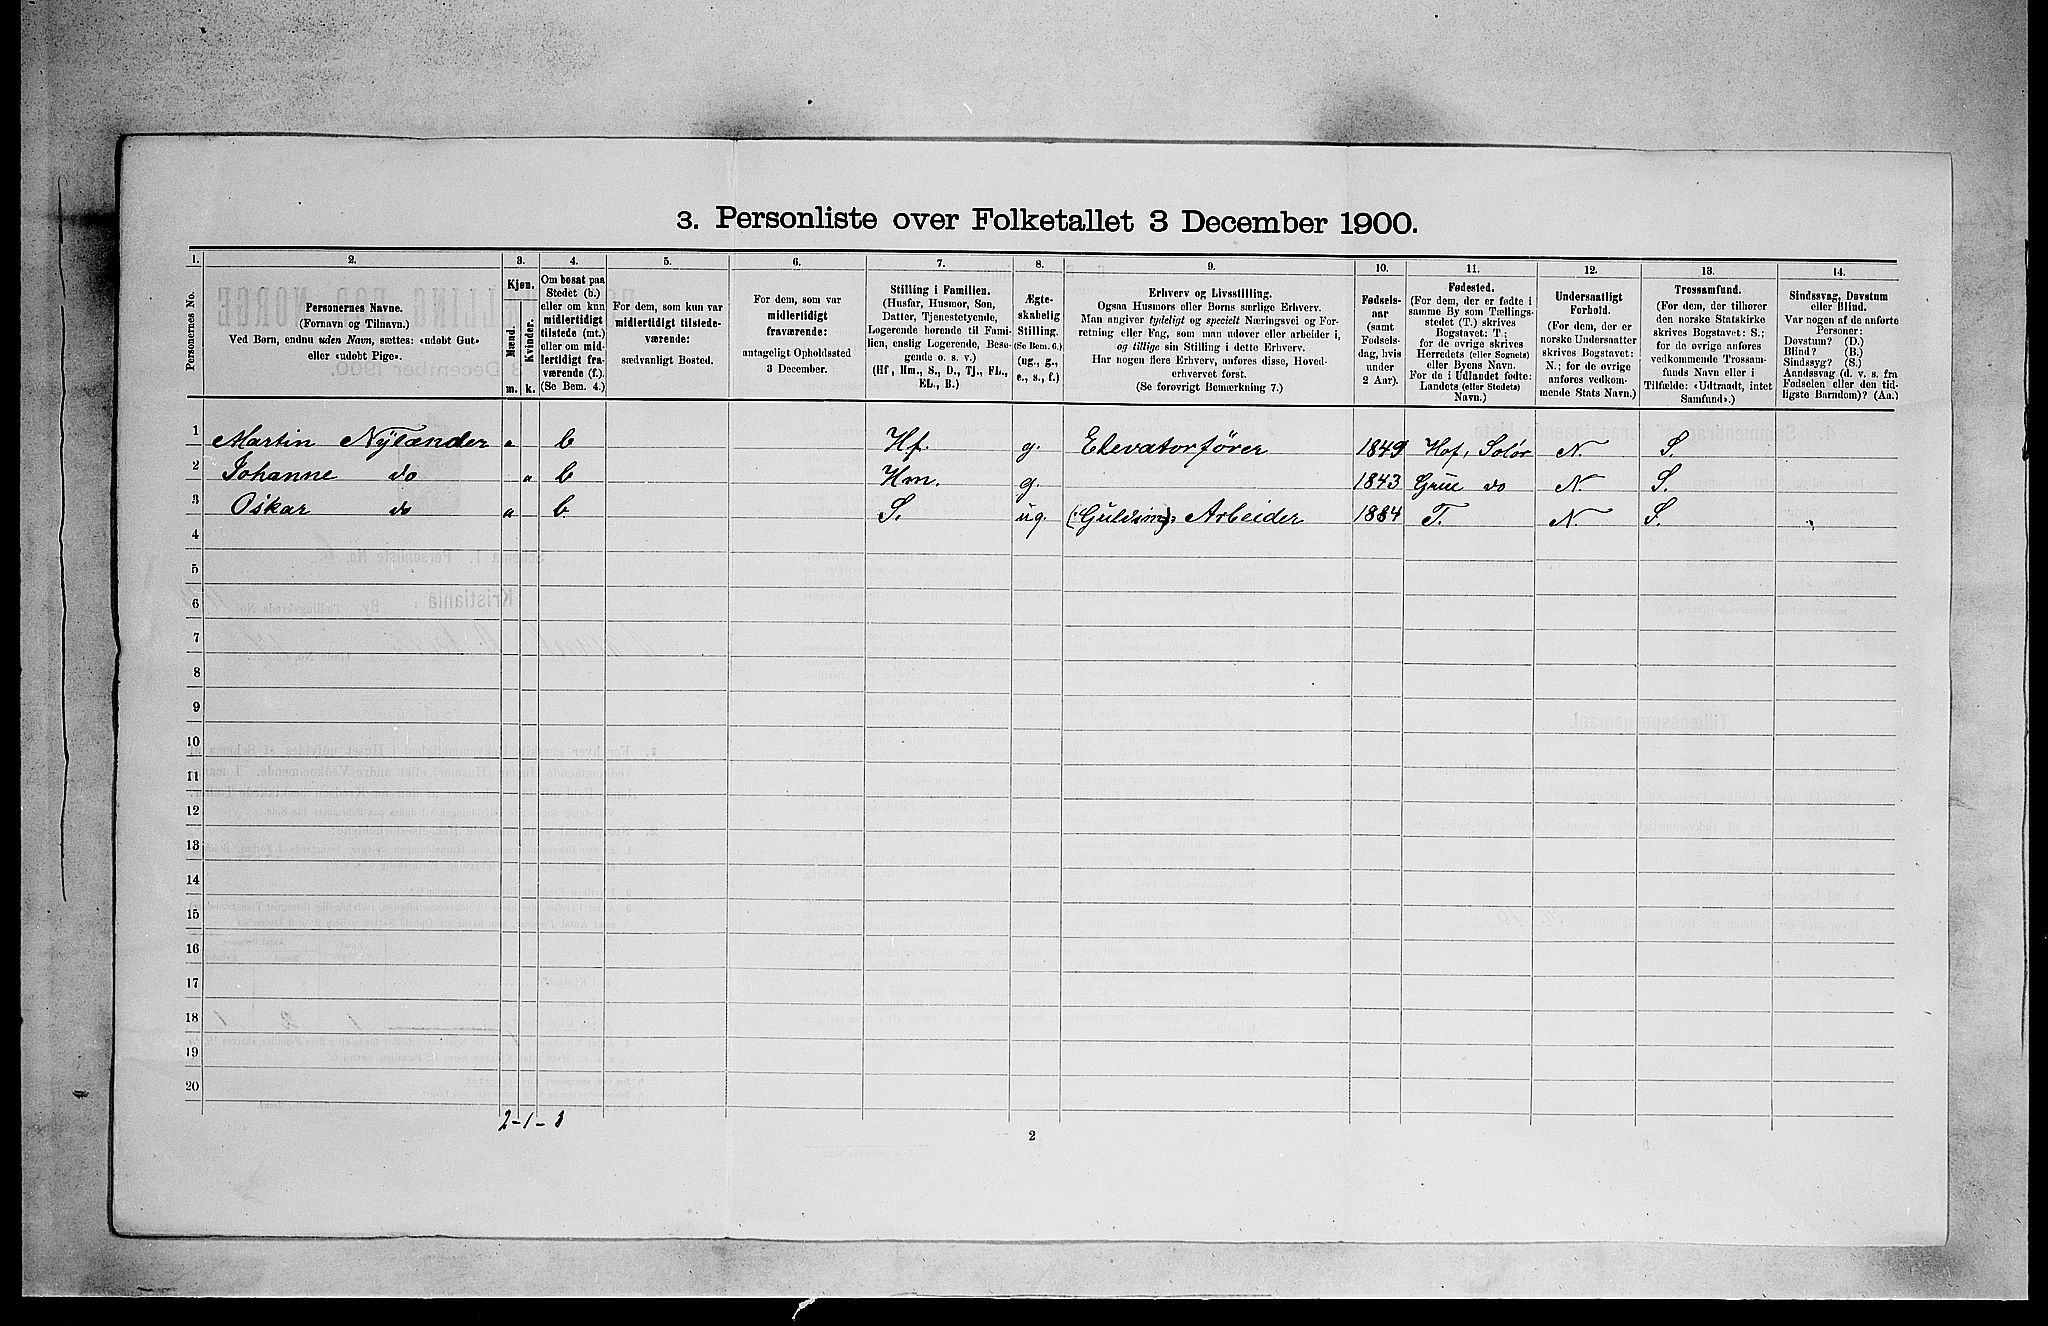 3. Personliste over Folketallet 3 December 1900.
1. 2. 3. 4. 5. 6. 7. 8. 9. 10. 11. 12. 13. 14.
Personernes No.
Personernes Navne.
(Fornavn og Tilnavn.)
Ved Børn, endnu uden Navn, sættes: «udøbt Gut»
eller «udøbt Pige».
Kjøn.
Mænd.
Kvinder.
m. k.
Om bosat paa
Stedet (b.)
eller om kun
midlertidigt
tilstede (mt.)
eller om mid-
lertidigt fra-
værende (f.).
(Se Bem. 4.)
For dem, som kun var
midlertidigt tilstede-
værende:
sædvanligt Bosted.
For dem, som var
midlertidigt
fraværende:
antageligt Opholdssted
3 December.
Stilling i Familien.
(Husfar, Husmor, Søn,
Datter, Tjenestetyende,
Logerende hørende til Fami-
lien, enslig Logerende, Besø-
gende o. s. v.)
(Hf., Hm., S., D., Tj., FL.,
EL., B.)
Ægte-
skabelig
Stilling.
(Se Bem. 6.)
(ug., g.,
e., s., f.)
Erhverv og Livsstilling.
Ogsaa Husmors eller Børns særlige Erhverv.
Man angiver tydeligt og specielt Næringsvei og For-
retning eller Fag, som man udøver eller arbeider i,
og tillige sin Stilling i dette Erhverv.
Har nogen flere Erhverv, anføres disse, Hoved-
erhvervet først.
(Se forøvrigt Bemærkning 7.)
Fødsels-
aar
(samt
Fødsels-
dag, hvis
under
2 Aar).
Fødested.
(For dem, der er fødte i
samme By som Tællings-
stedet (T.) skrives
Bogstavet: T.;
for de øvrige skrives
Herredets (eller Sognets)
eller Byens Navn.
For de i Udlandet fødte:
Landets (eller Stedets)
Navn.)
Undersaatligt
Forhold.
(For dem, der er
norske Undersaatter
skrives Bogstavet:
N.; for de øvrige
anføres vedkom-
mende Stats Navn.)
Trossamfund.
(For dem, der tilhører
den norske Statskirke
skrives Bogstavet: S.;
for de øvrige anføres
vedkommende Trossam-
funds Navn eller i
Tilfælde: «Udtraadt, intet
Samfund».)
Sindssvag, Døvstum
eller Blind.
Var nogen af de anførte
Personer:
Døvstum? (D.)
Blind? (B.)
Sindssyg? (S.)
Aandssvag (d. v. s. fra
Fødselen eller den tid-
ligste Barndom)? (Aa.)
1 Martin Nylænder b Hf. g. Elevatorfører 1849 Hof, Solør N. S.
2 Johanne do b Hm. g. 1843 Grue do N. S.
3 Oskar do b S. ug. (Guldsm.) Arbeider 1884 T. N. S.
4
5
6
7
8
9
10
11
12
13
14
15
16
17
18
19
20
2-1-
2